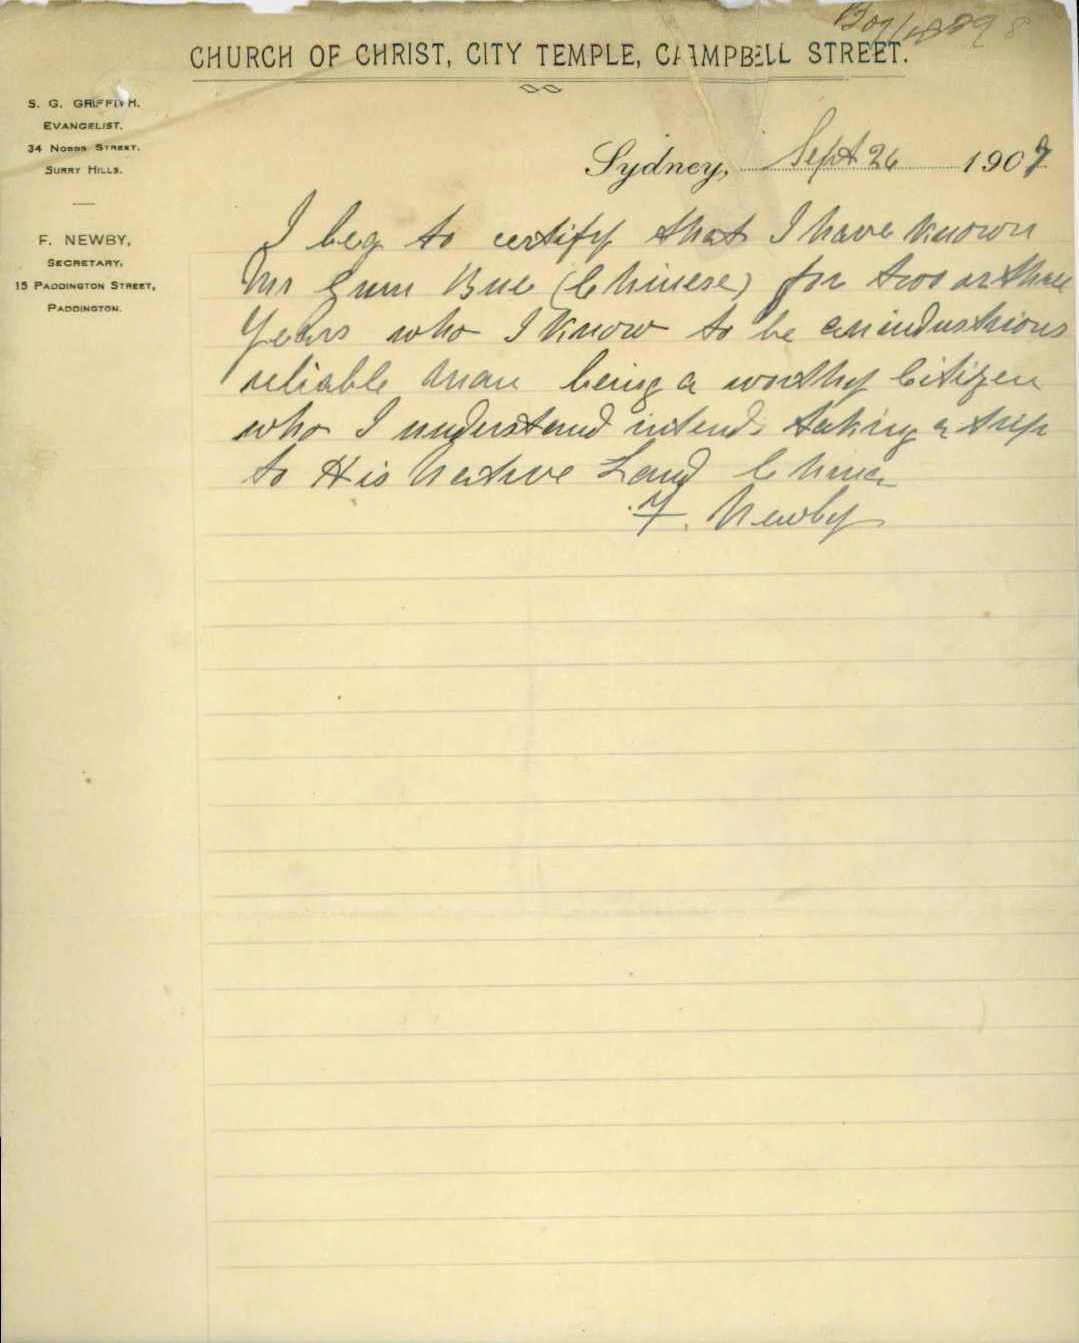 CHURCH OF CHRIST, CITY TEMPLE, CAMPBELL STREET.
S. G. GRIFFITH.
EVANGELIST.
34 NOBBS STREET.
SURRY HILLS.
F. NEWBY,
SECRETARY,
15 PADDINGTON STREET,
PADDINGTON.
Sydney, Sept 26 1907
I beg to certify that I have known
Mr Gum Bue (Chinese) for two or three
Years who I know to be an industrious
reliable Man being a worthy Citizen
who I understand intends taking a trip
to His Native Land China
F. Newby